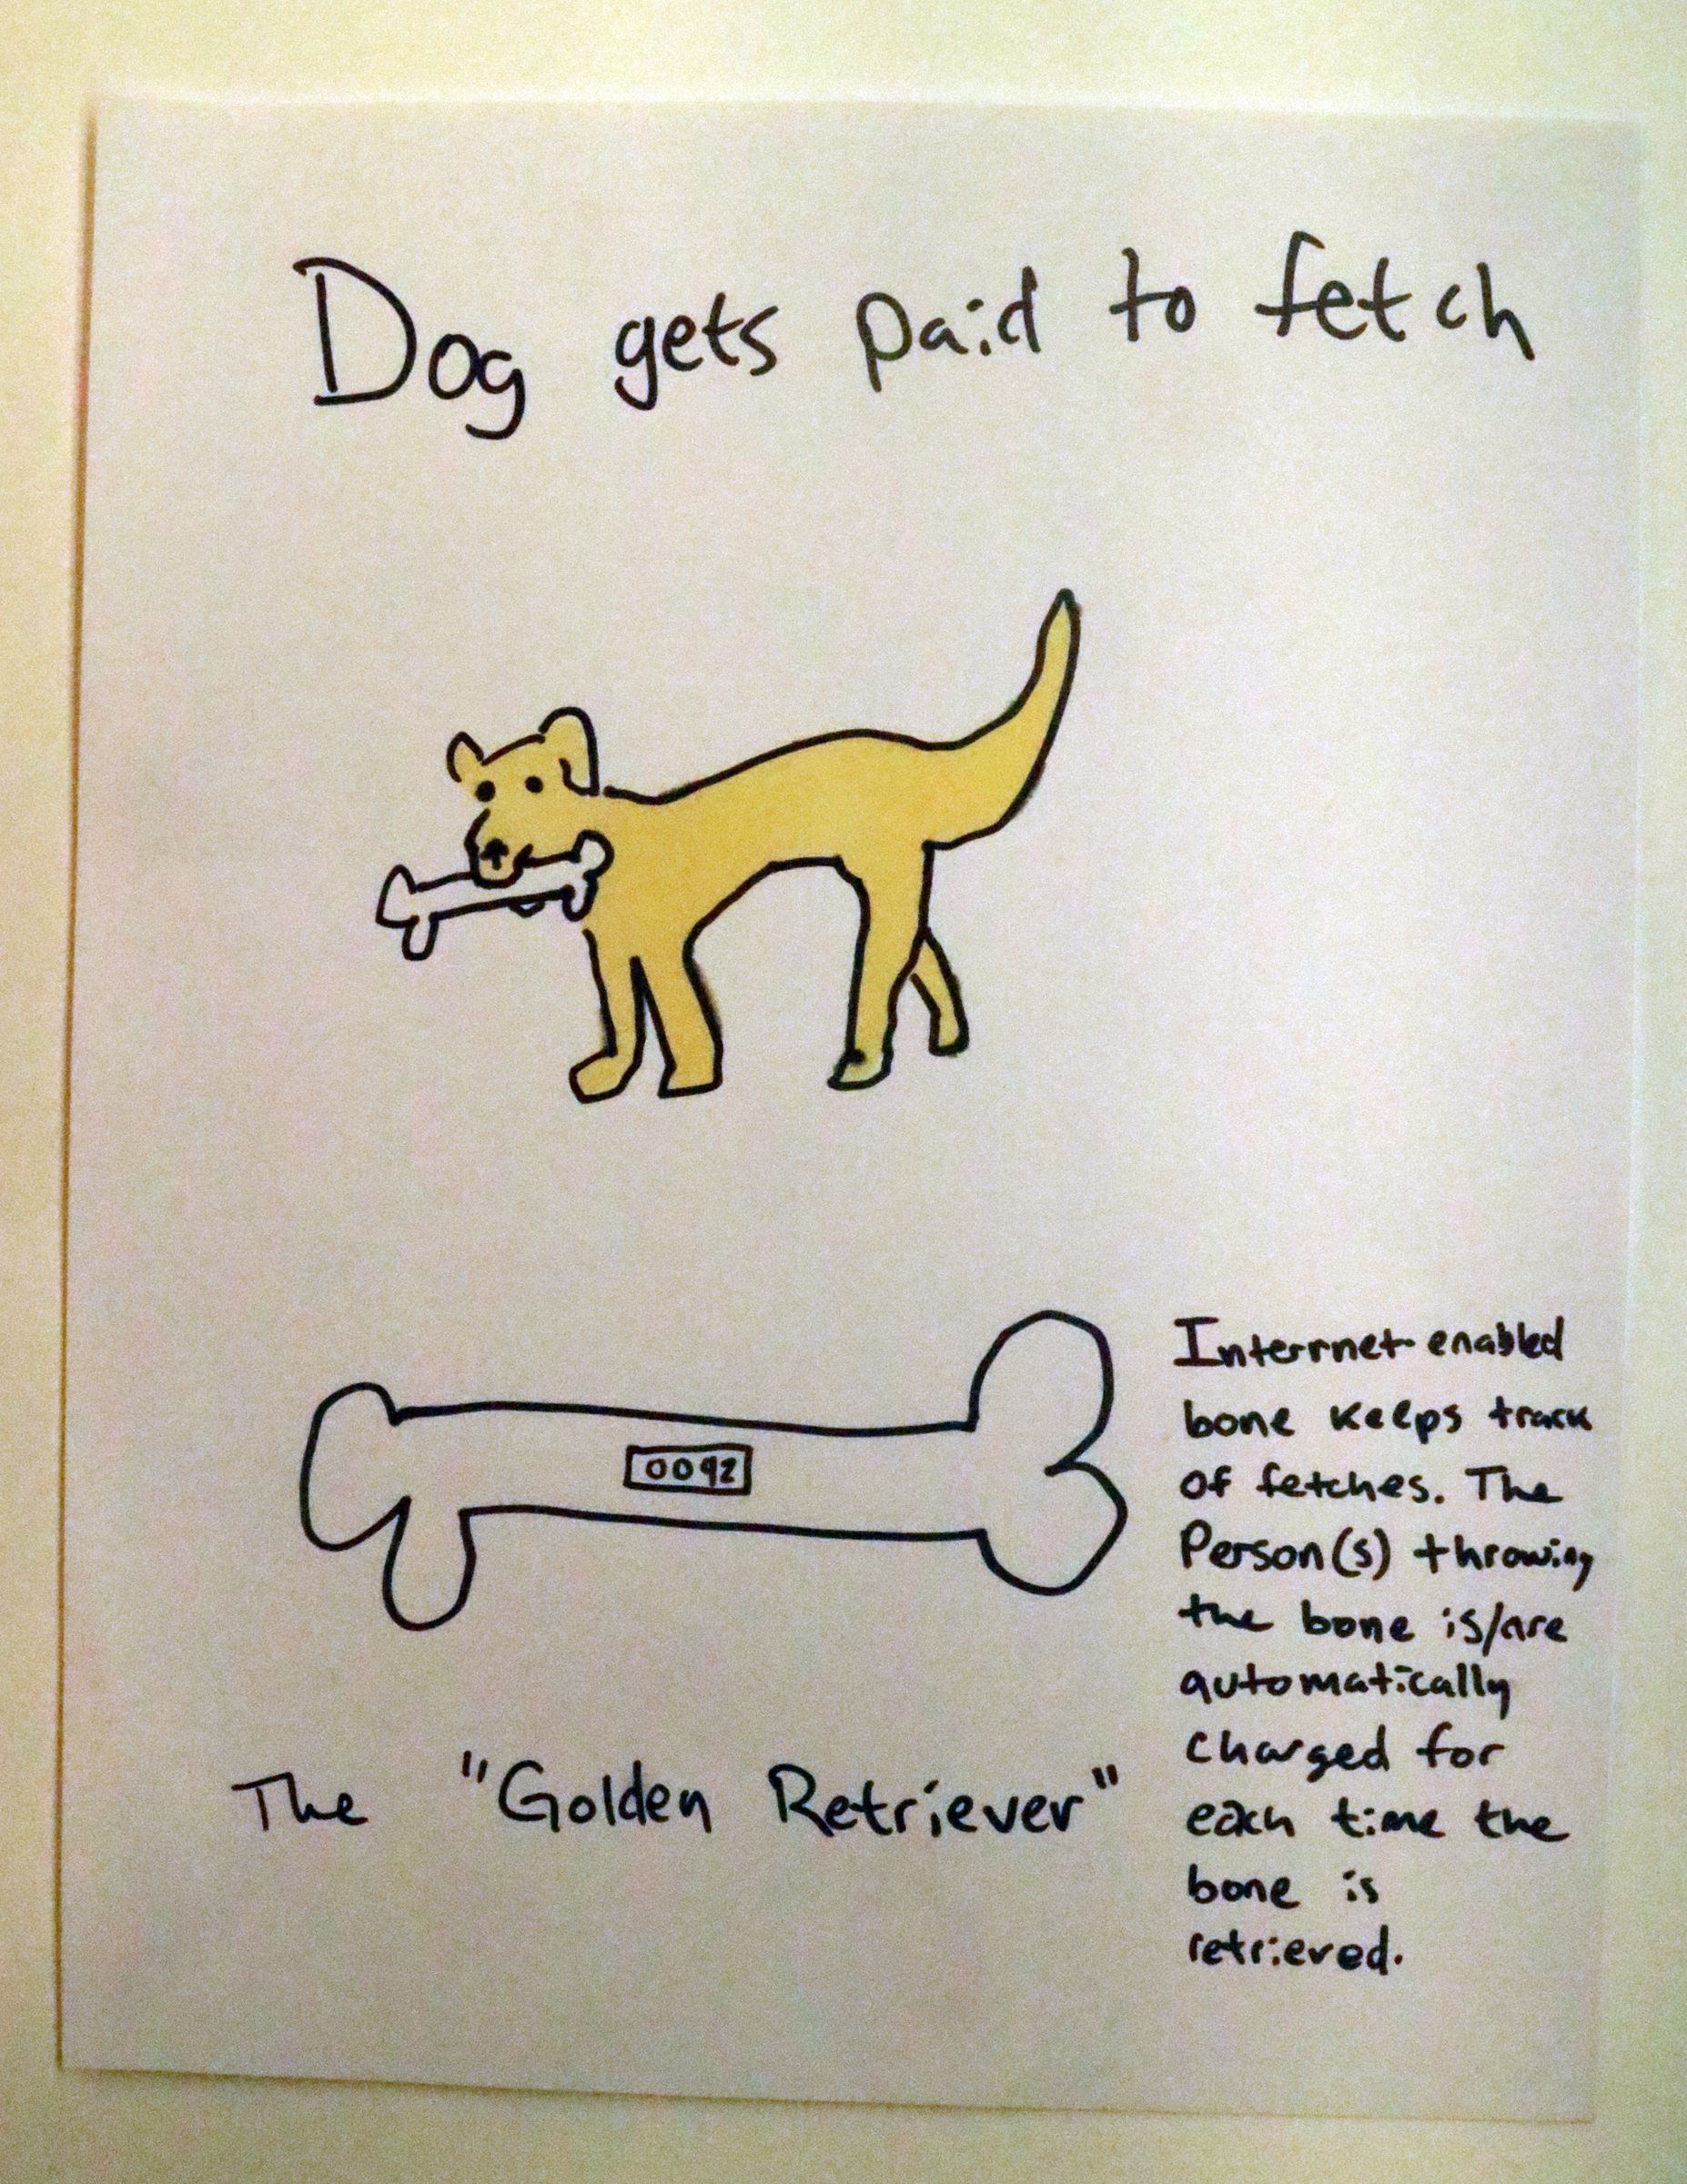 Dog gets paid to fetch
0092
The "Golden Retriever"
Internet-enabled
bone keeps track
of fetches. The
Person(s) throwing
the bone is/are
automatically
charged for
each time the
bone is
retrieved.